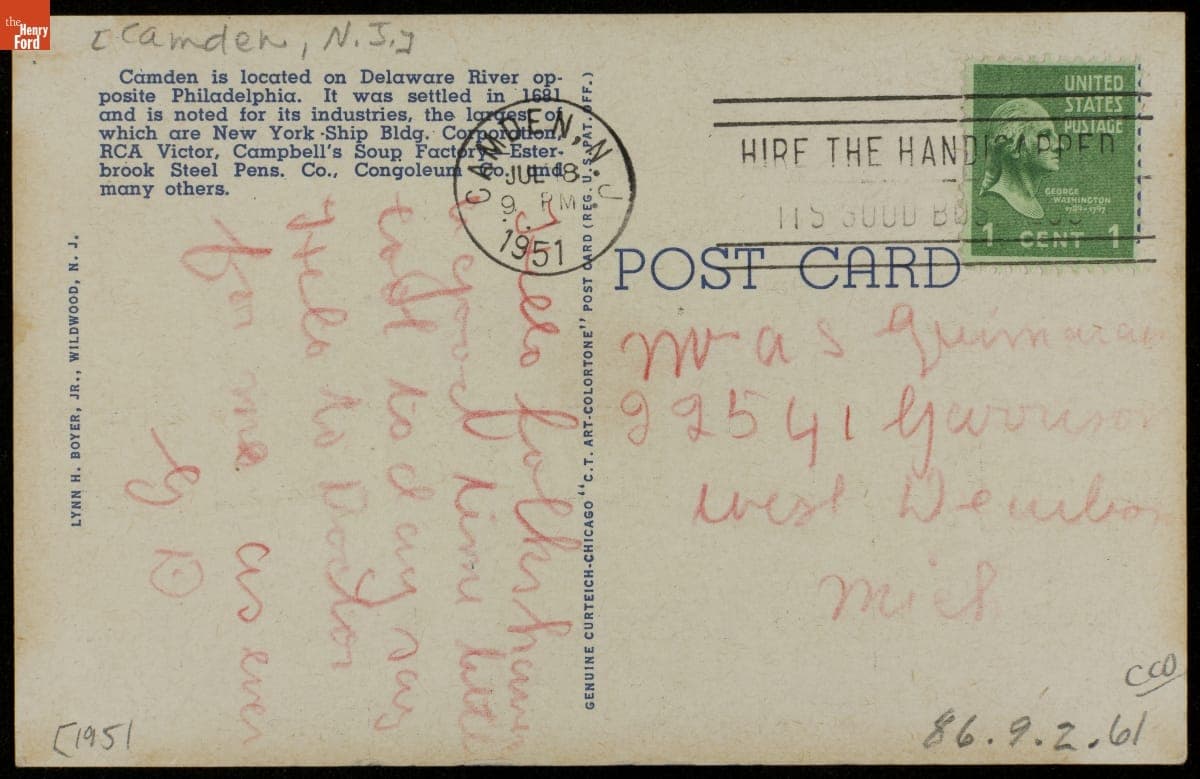 the
Henry
Ford
[Camden, N.J.]
Camden is located on Delaware River op-
posite Philadelphia. It was settled in 1681
and is noted for its industries, the largest of
which are New York Ship Bldg. Corporation,
RCA Victor, Campbell's Soup Factory, Ester-
brook Steel Pens. Co., Congoleum Co. and
many others.
CAMDEN, N.J.
9 PM
1951
HIRE THE HANDICAPPED
ITS GOOD BUSINESS
UNITED
STATES
POSTAGE
GEORGE
WASHINGTON
1789-1797
1 CENT 1
POST CARD
LYNN H. BOYER, JR., WILDWOOD, N. J.
GENUINE CURTEICH-CHICAGO "C.T. ART-COLORTONE" POST CARD (REG. U.S. PAT. OFF.)
Hello folks have
a good time
to day say
Hello to Doctor
for me as ever
Mr a s
22541 Garrison
west
Mich
CCO
[1951
86.9.2.61